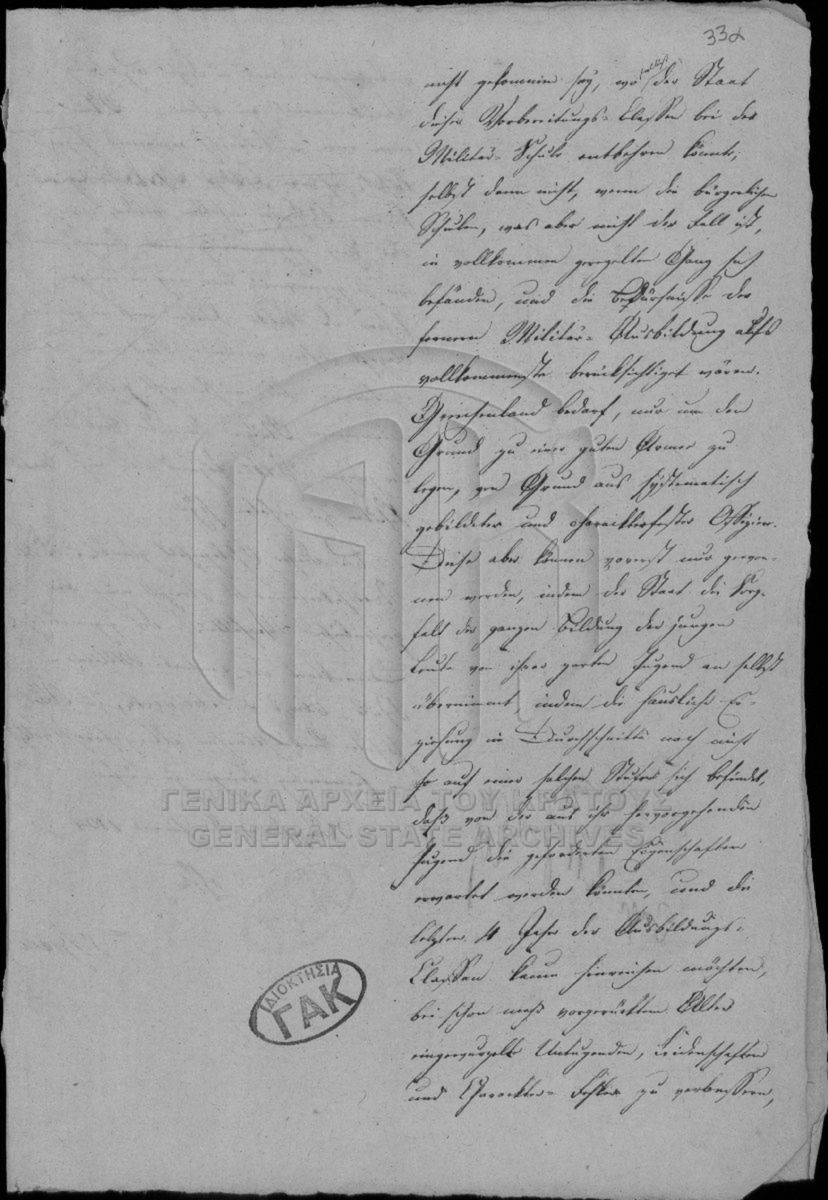 33α
nicht gekommen sey, wo selbst der Staat
dieser Vorbereitungs-Classen bei der
Militär-Schule entbehren könnte,
selbst dann nicht, wenn die bürgerlichen
Schulen, was aber nicht der Fall ist,
in vollkommen geregelten Gang sich
befänden, und die Bedürfnisse der
fernern Militär-Ausbildung aufs
vollkommenste berücksichtiget wären.
Griechenland bedarf, nur um den
Grund zu einer guten Armee zu
legen, von Grund aus systematisch
gebildeter und charakterfester Offiziere.
Diese aber können vorerst nur gewon-
nen werden, indem der Staat die Sorg-
falt der ganzen Bildung der jungen
Leute von ihrer zarten Jugend an selbst
übernimmt, indem die häusliche Er-
ziehung im Durchschnitte noch nicht
so auf einer solchen Stufe sich befindet,
daß von der aus ihr hervorgehenden
Jugend die geforderten Eigenschaften
erwartet werden könnten, und die
letzten 4 Jahre der Ausbildungs-
Classen kaum hinreichen möchten,
bei schon mehr vorgerücktem Alter
eingewurzelte Untugenden, Leidenschaften
und Charakter-Fehler zu verbessern,
ΓΕΝΙΚΑ ΑΡΧΕΙΑ ΤΟΥ ΚΡΑΤΟΥΣ
GENERAL STATE ARCHIVES
ΙΔΙΟΚΤΗΣΙΑ
ΓΑΚ